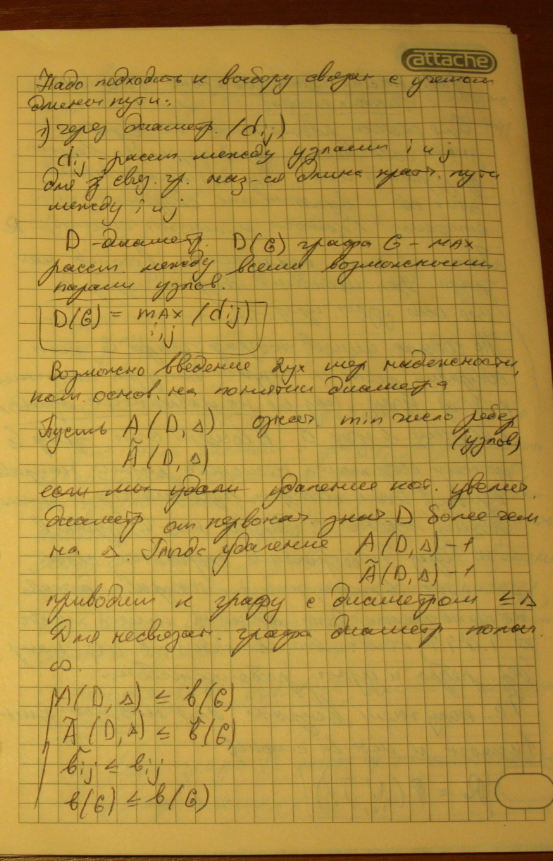 attache
Надо подходить к выбору связан. с учетом
длины пути:
1) через диаметр. (dij)
dij - расст. между узлами i и j
для свяс. гр. наз-ся длина кратч. пути
между i и j
D - диаметр. D(G) графа G - max
расст. между всеми возможными
парами узлов.
D(G) = max (dij)
i,j
Возможно введение 2ух мер надежности,
кот. основ. на понятии диаметра
Пусть A(D, Δ) означ min число ребер
(узлов)
Ã(D, Δ)
если мы удали удаление кот. увелич.
диаметр от первонач. знач. D более чем
на Δ. Тогда удаление A(D, Δ) - 1
Ã(D, Δ) - 1
приводит к графу с диаметром ≤ Δ
Для несвязан. графа диаметр полаг.
∞.
A(D, Δ) ≤ b(G)
Ã(D, Δ) ≤ b̃(G)
b̃ij ≤ bij
b(G) ≤ b(G)